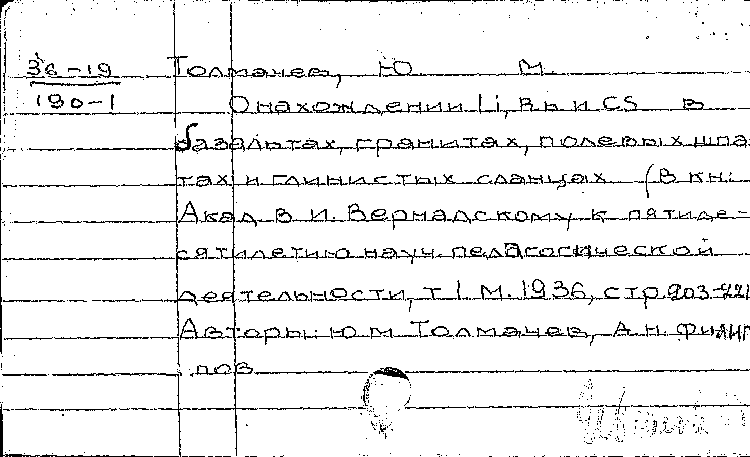 36-19 Толмачев, Ю. М.
190-1 О нахождении Li, Rb и CS в
базальтах, гранитах, полевых шпа
тах и глинистых сланцах (В кн:
Акад. В И. Вернадскому к пятиде-
сятилетию науч. педагогической
деятельности, т I М. 1936, стр.
Авторы: Ю М Толмачев, А. Н. Филип
пов